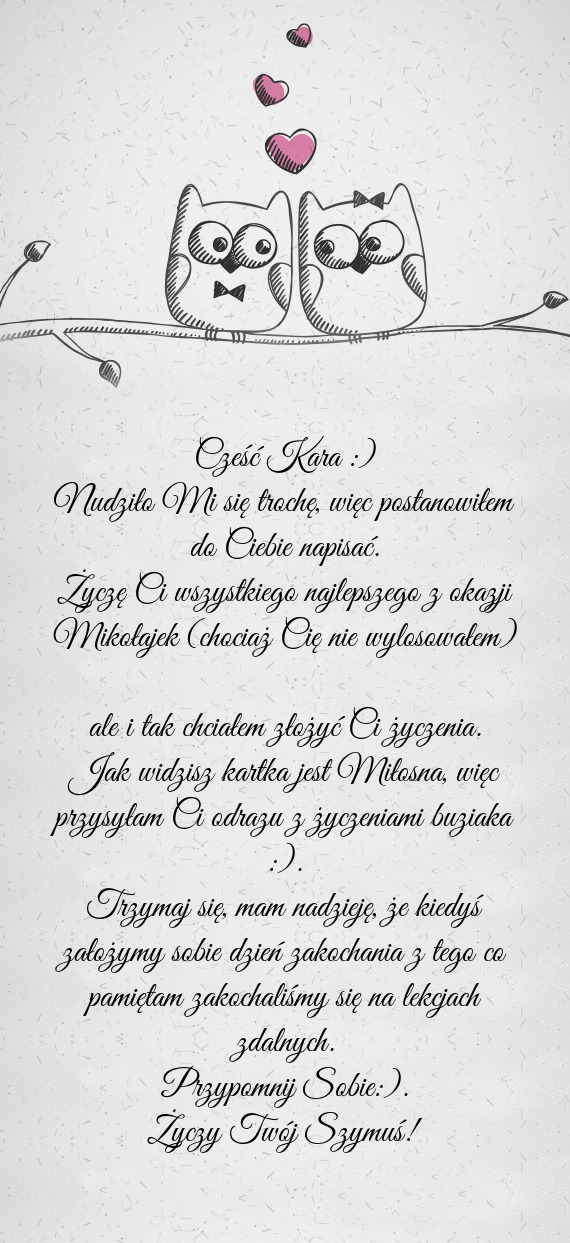 Cześć Kara :)
Nudziło Mi się trochę, więc postanowiłem
do Ciebie napisać.
Życzę Ci wszystkiego najlepszego z okazji
Mikołajek (chociaż Cię nie wylosowałem)
ale i tak chciałem złożyć Ci życzenia.
Jak widzisz kartka jest Miłosna, więc
przysyłam Ci odrazu z życzeniami buziaka
:).
Trzymaj się, mam nadzieję, że kiedyś
założymy sobie dzień zakochania z tego co
pamiętam zakochaliśmy się na lekcjach
zdalnych.
Przypomnij Sobie:).
Życzy Twój Szymuś!